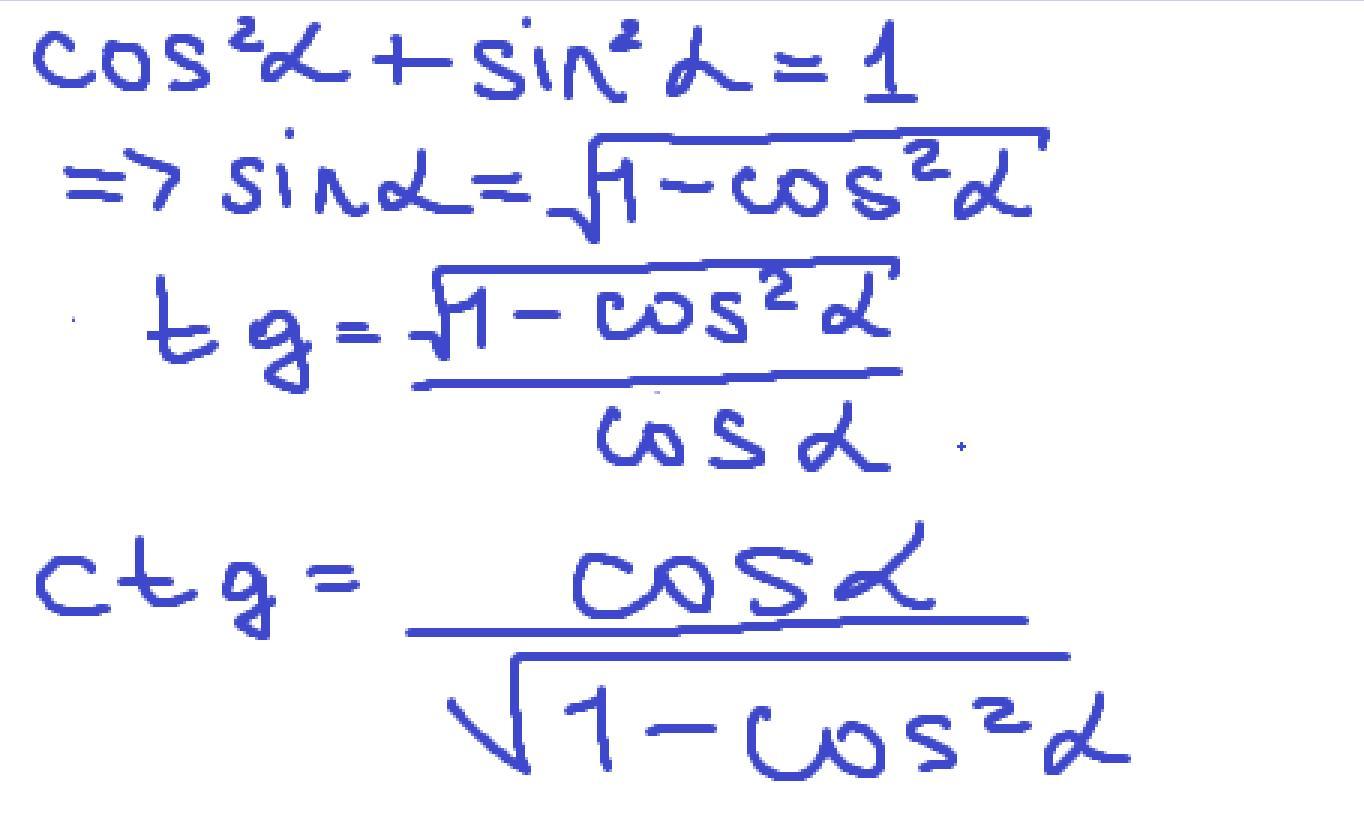 cos²α + sin²α = 1
=> sinα = √(1 - cos²α)
tg = √(1 - cos²α) / cosα
ctg = cosα / √(1 - cos²α)